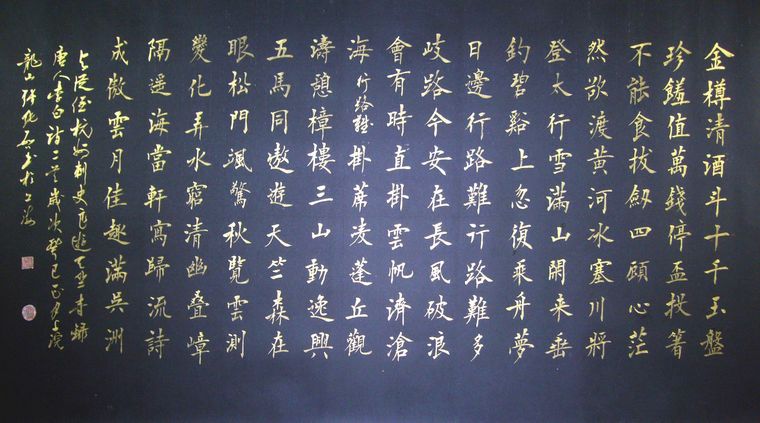 金樽清酒斗十千玉盤
珍饈值萬錢停盃投箸
不能食拔劔四顧心茫
然欲渡黃河冰塞川將
登太行雪滿山閑来垂
釣碧谿上忽復乘舟夢
日邊行路難行路難多
岐路今安在長風破浪
會有時直掛雲帆濟滄
海行路難掛蓆凌蓬丘觀
濤憩樟樓三山動逸興
五馬同遨遊天竺森在
眼松門颯驚秋覽雲測
變化弄水窮清幽疊嶂
隔遥海當軒寫歸流詩
成傲雲月佳趣滿吳洲
与從侄杭州刺史良遊天竺寺録
唐人李白詩二首歲次癸巳正月
龍山書於上海